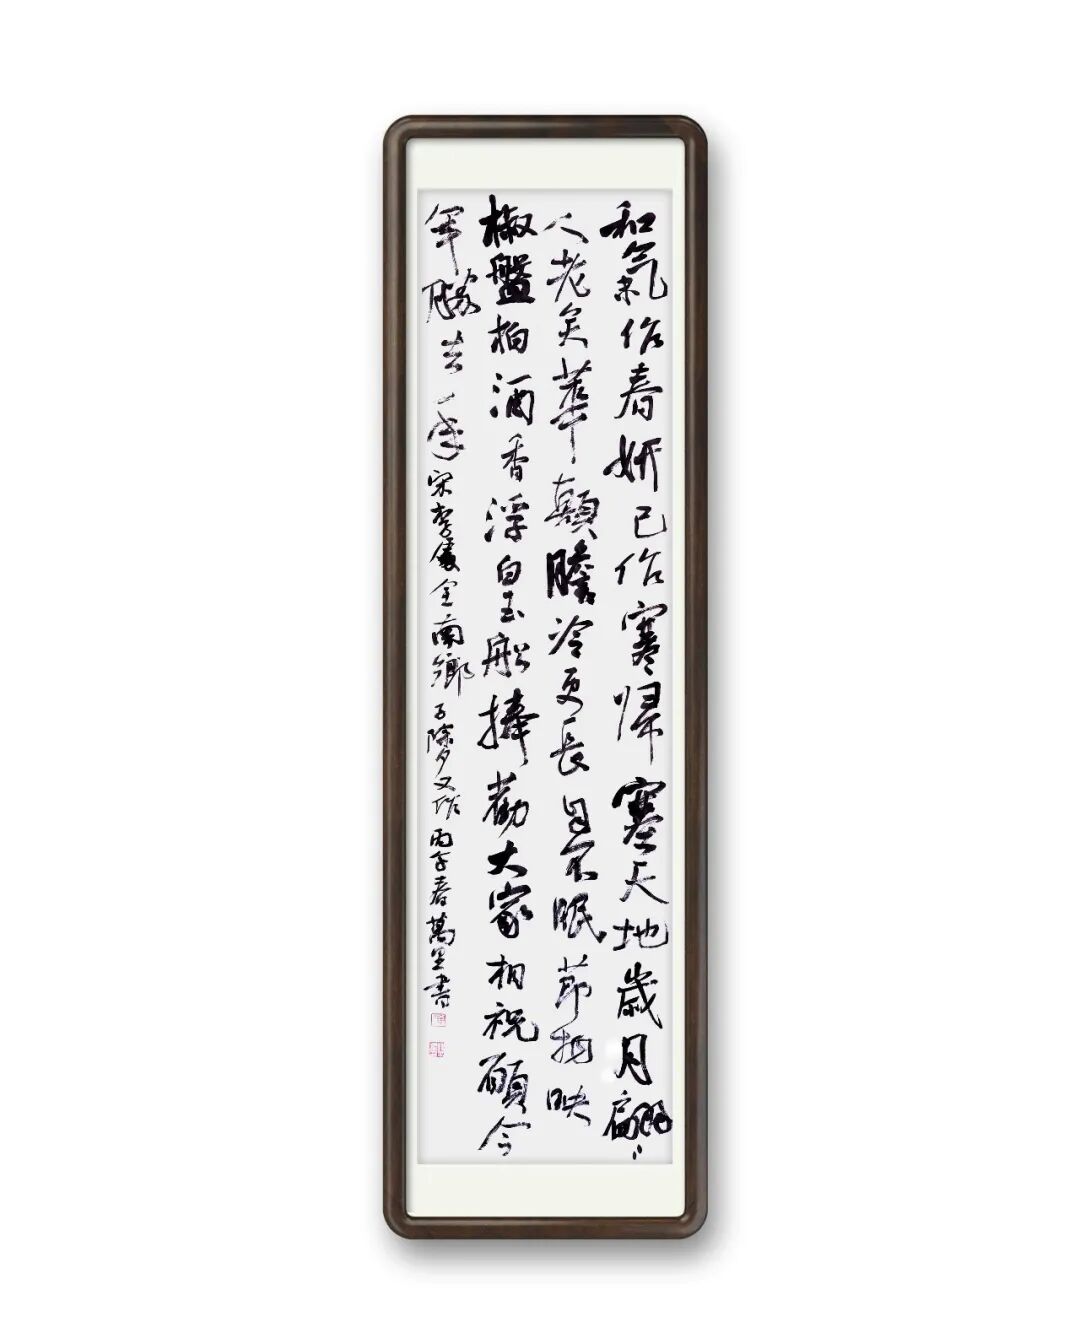 和氣作春妍已作寒帰塞天地歲月翩〻
人老矣華顛膽冷更長自不眠節物映
椒盤柏酒香浮白玉船捧勸大家相祝願今
年勝去年 宋李處全南鄉子除夕又作 丙午春萬里書